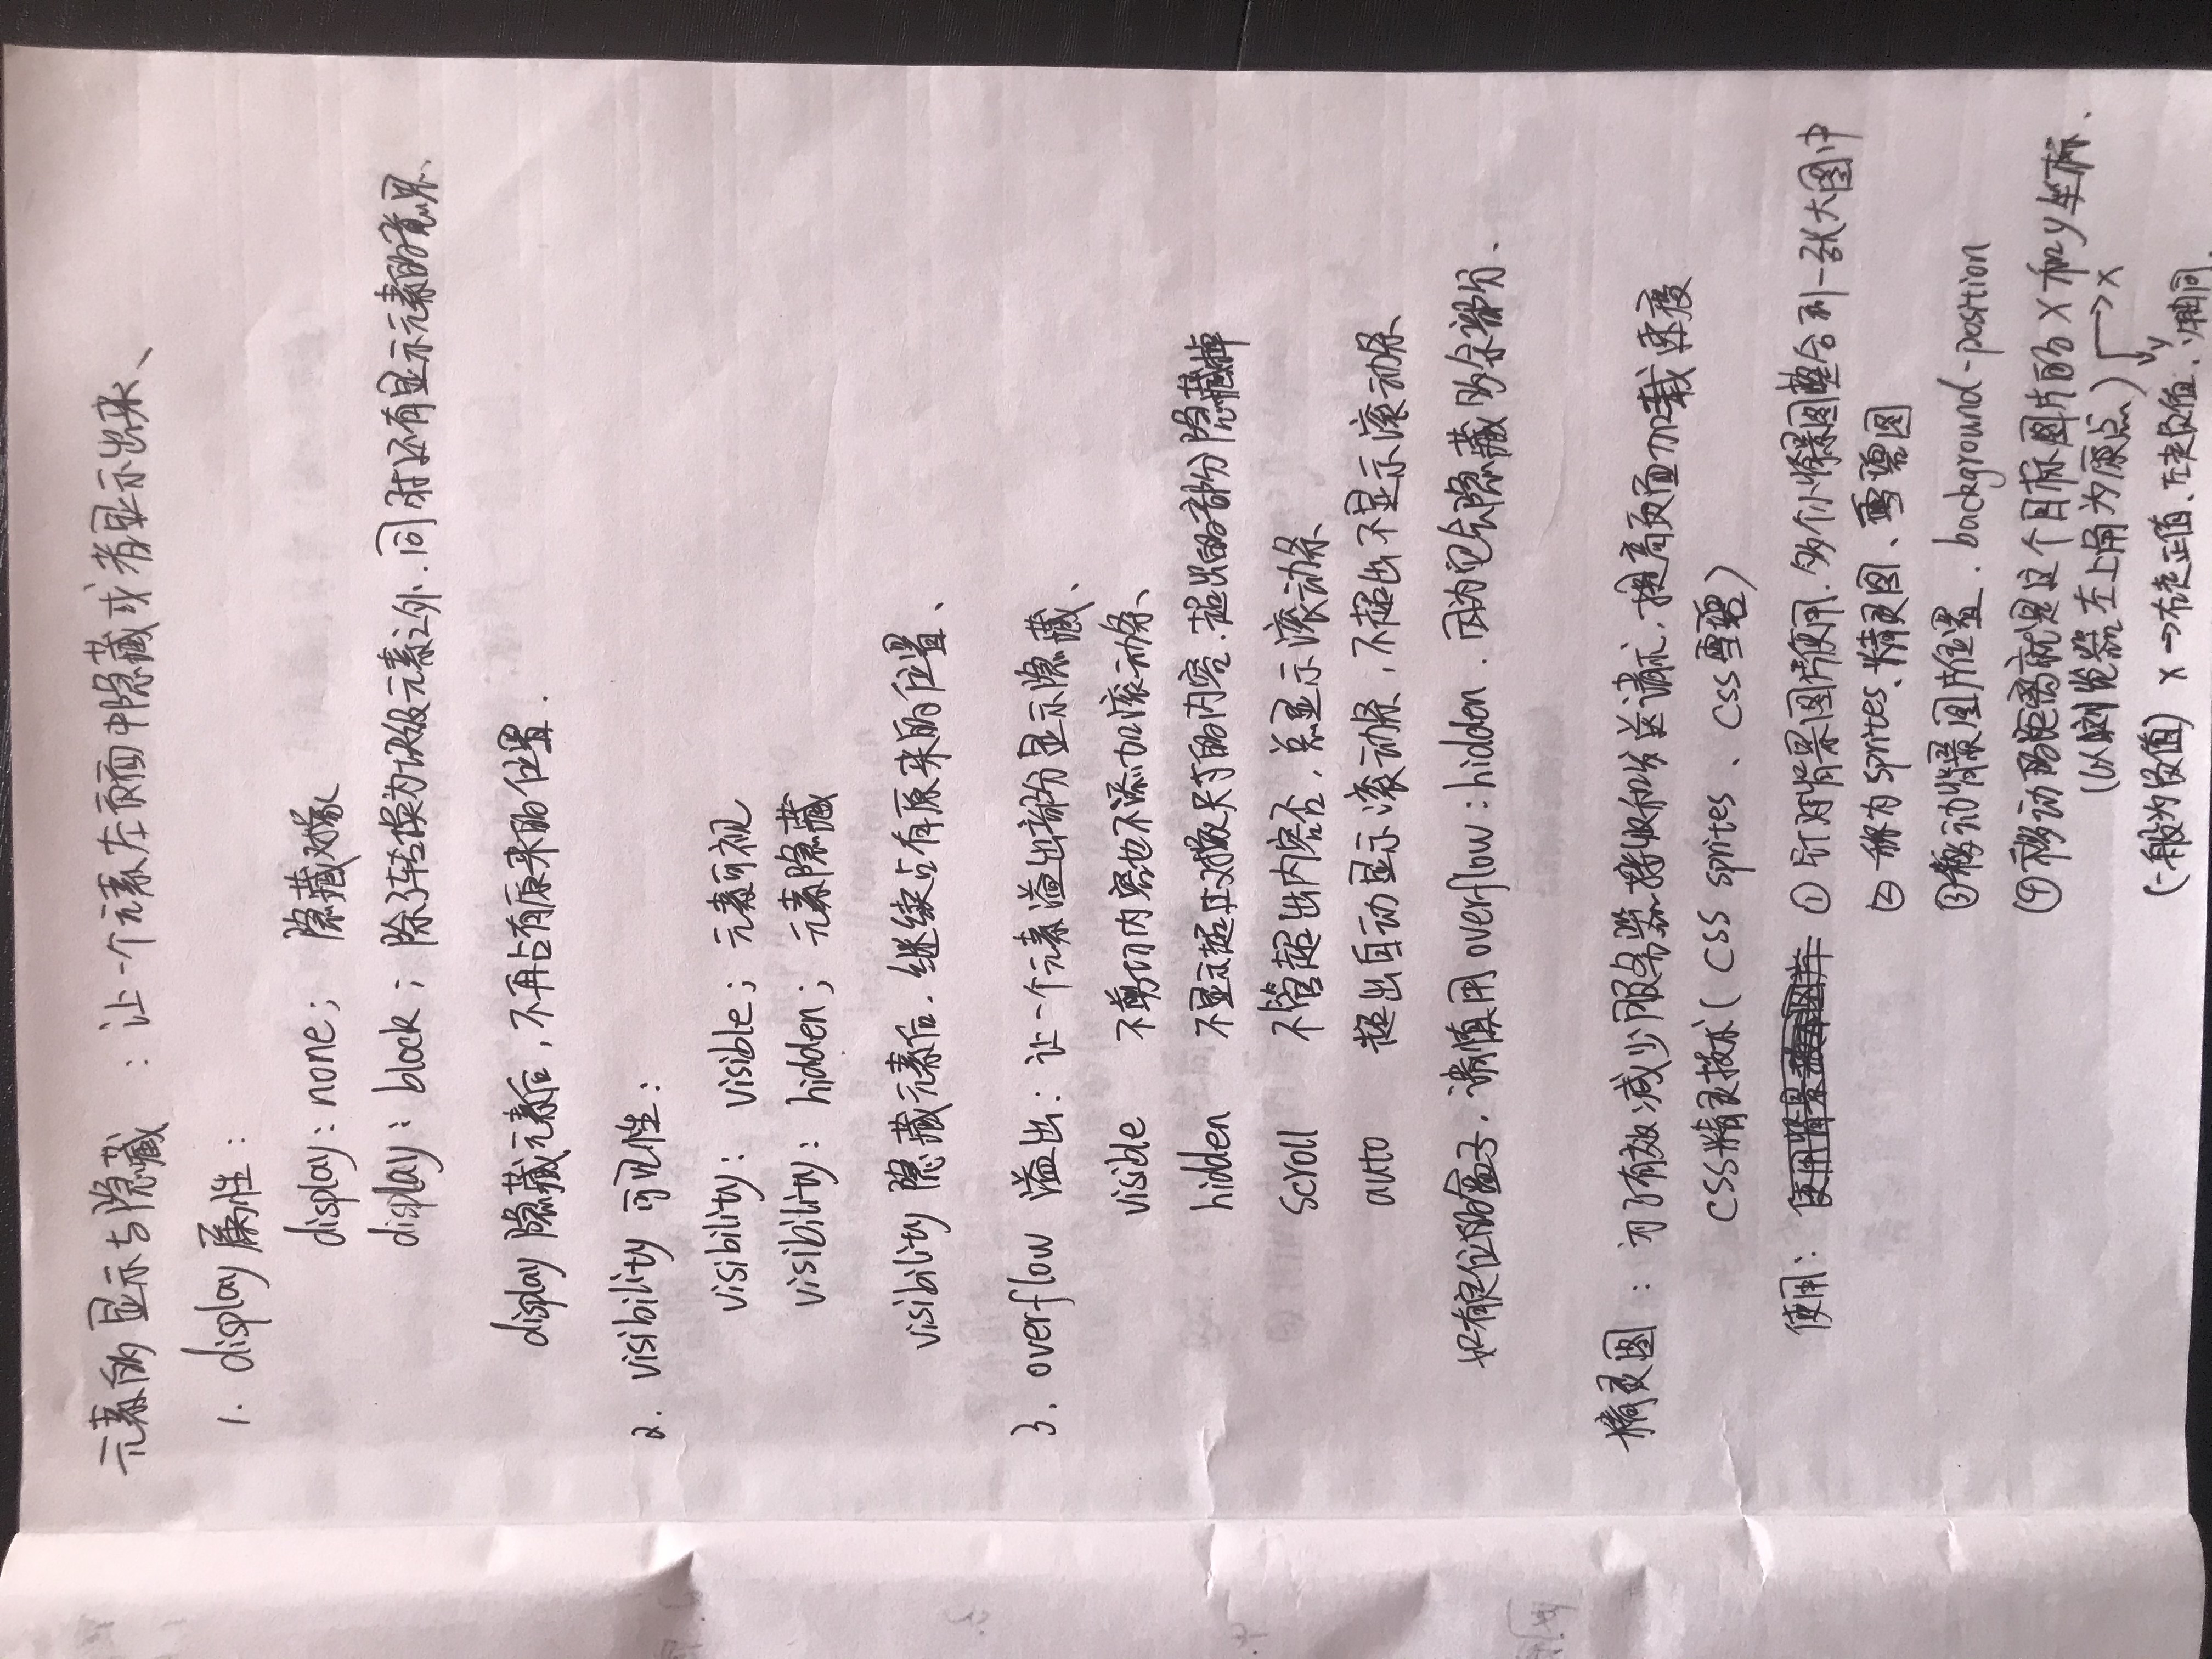 元素的显示与隐藏 : 让一个元素在页面中隐藏或者显示出来、
1. display 属性:
display: none; 隐藏对象
display: block; 除了转换为块级元素之外.同时还有显示元素的意思、
display 隐藏元素后,不再占有原来的位置.
2. visibility 可见性:
visibility: visible; 元素可视
visibility: hidden; 元素隐藏
visibility 隐藏元素后.继续占有原来的位置、
3. overflow 溢出: 让一个元素溢出部分显示隐藏、
visible 不剪切内容也不添加滚动条、
hidden 不显示超过对象尺寸的内容.超出的部分隐藏掉
scroll 不管超出内容否,总显示滚动条
auto 超出自动显示滚动条,不超出不显示滚动条
如有定位的盒子.请慎用 overflow:hidden.因为它会隐藏多余部分、
精灵图 : 为了有效减少服务器接收和发送请求,提高页面加载速度
CSS精灵技术( CSS sprites 、CSS雪碧)
使用: ①针对背景图片使用.多个小背景图整合到一张大图中
②称为sprites、精灵图、雪碧图
③移动背景图片位置.background-position
④移动的距离就是这个目标图片的 x 和 y 坐标、
(以浏览器左上角为原点) →x
y
(一般为负值) x→右走正值、左走负值、y轴同.